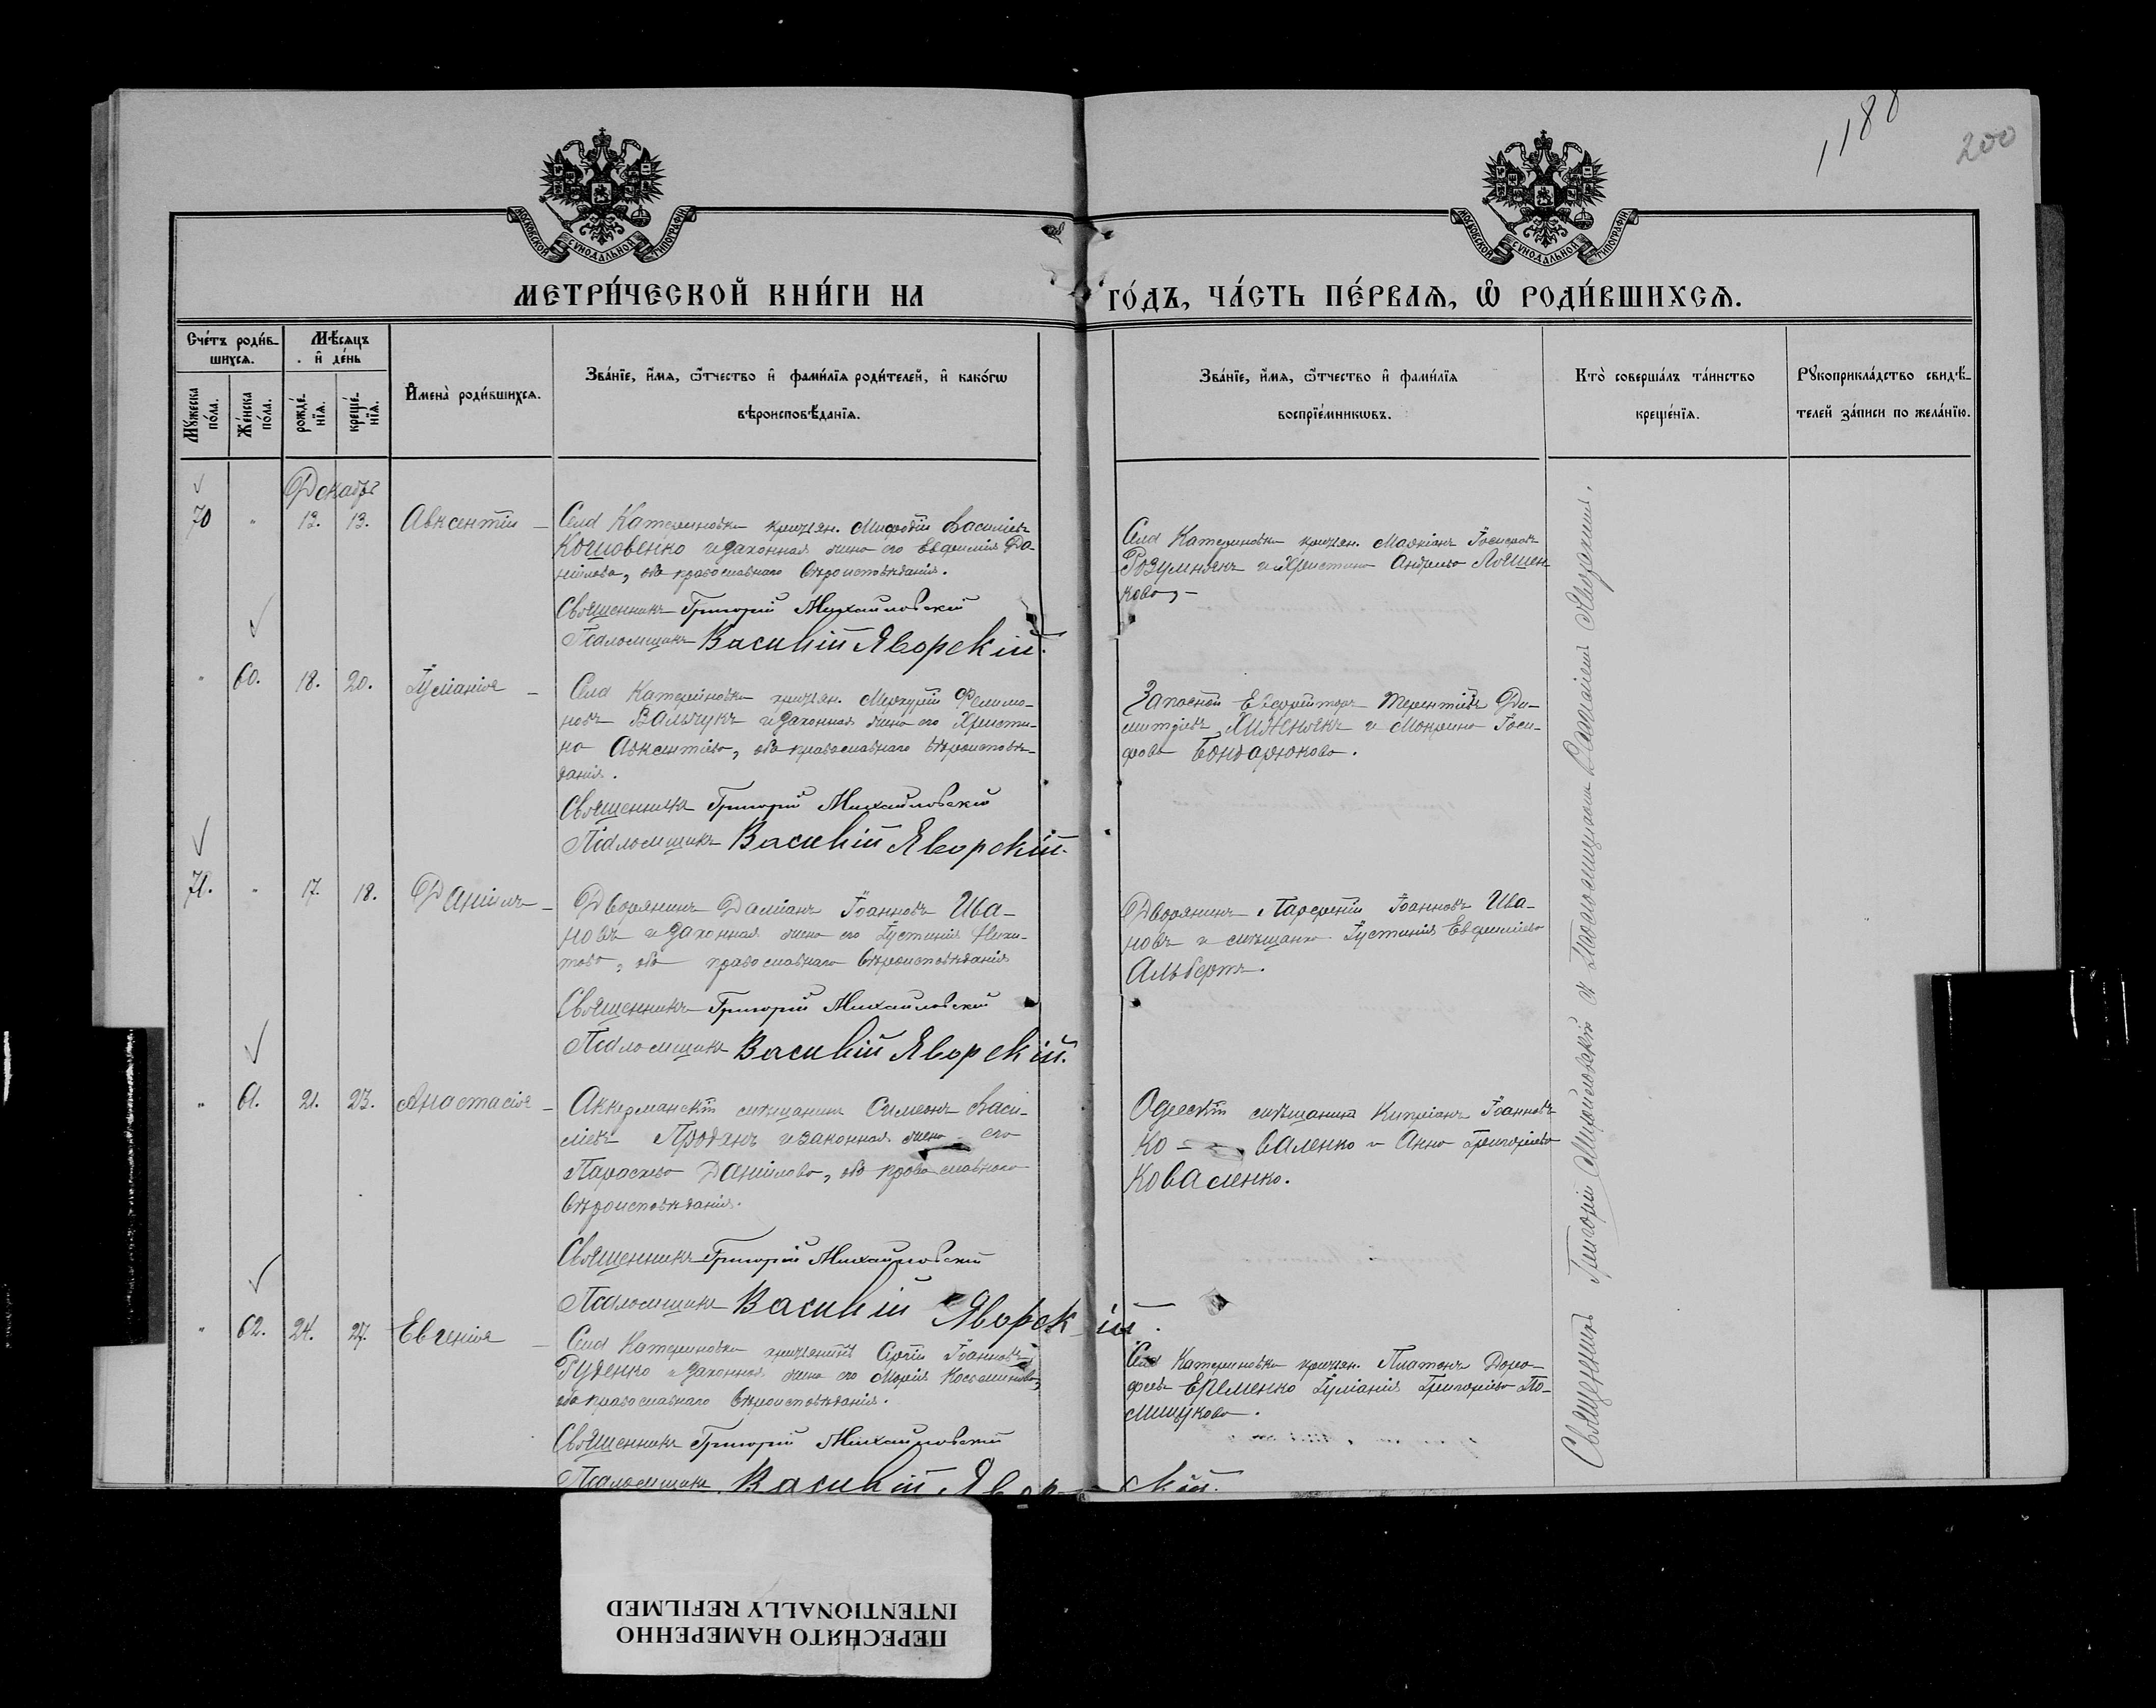 1188
200
МОСКОВСКОЙ СѴНОДАЛЬНОЙ ТИПОГРАФІИ
МОСКОВСКОЙ СѴНОДАЛЬНОЙ ТИПОГРАФІИ
МЕТРИ́ЧЕСКОЙ КНИ́ГИ НА ГО́ДЪ, ЧА́СТЬ ПЕ́РВАЯ, Ѽ РОДИ́ВШИХСЯ.
Сче́тъ роди́в-
шихся.
Мѣ́сяцъ
и҆ де́нь
Мꙋ́жеска по́ла.
Же́нска по́ла.
рожде́-
нїя.
креще́-
нїя.
И҆мена̀ роди́вшихся.
Зва́нїе, и҆́мя, ѻ҆́тчество и҆ фами́лїя роди́телей, и҆ како́гѡ
вѣроисповѣ́данїя.
Зва́нїе, и҆́мя, ѻ҆́тчество и҆ фами́лїя
воспрїе́мникѡвъ.
Кто̀ соверша́лъ та́инство
креще́нїя.
Рꙋкоприкла́дство свидѣ́-
телей за́писи по жела́нїю.
Декабрь
70 " 12. 13. Авксентій –
Села Катериновки крестьян. Мефодій Васильевъ
Кошовенко и законная жена его Евфимія Да-
ніилова, оба православнаго вѣроисповѣданія.
Священникъ Григорій Михайловскій
Псаломщикъ Василій Яворскій.
Села Катериновки крестьян. Іосифовъ
Розумнякъ и Христина Андреева
кова, –
" 60. 18. 20. Іуліанія –
Села Катериновки крестьян. Меркурій Филимо-
новъ Вальчукъ и законная жена его Христи-
на Авксентіева, оба православнаго вѣроисповѣ-
данія.
Священникъ Григорій Михайловскій
Псаломщикъ Василій Яворскій.
Запасной Ефрейторъ Терентій Ди-
митріевъ Хижнякъ и Іоси-
фова Бондарюкова.
71. " 17. 18. Даніилъ –
Дворянинъ Даміанъ Іоанновъ Ива-
новъ и законная жена его Іустинія Ники-
това, оба православнаго вѣроисповѣданія
Священникъ Григорій Михайловскій
Псаломщикъ Василій Яворскій.
Дворянинъ Парфеній Іоанновъ Ива-
новъ и мѣщанка Іустинія Евфиміева
Альбертъ.
" 61. 21. 23. Анастасія –
Аккерманскій мѣщанинъ Симеонъ Васи-
ліевъ Проданъ и законная жена его
Параскева Даніилова, оба православнаго
вѣроисповѣданія.
Священникъ Григорій Михайловскій
Псаломщикъ Василій Яворскій.
Одесскій мѣщанинъ Кипріанъ Іоанновъ
Ко- -валенко и Анна Григоріева
Коваленко.
" 62. 24. 27. Евгенія –
Села Катериновки крестьянинъ Сергій Іоанновъ
Руденко и законная жена его Марія Косьминова,
оба православнаго вѣроисповѣданія.
Священникъ Григорій Михайловскій
Псаломщикъ Василій Яворскій.
Села Катериновки крестьян. Платонъ Доро-
феевъ Еременко Іуліанія Григоріева По-
лищукова.
Священникъ Григорій Михайловскій и Псаломщикомъ Василіемъ Яворскимъ.
ПЕРЕСНЯТО НАМЕРЕННО
INTENTIONALLY REFILMED